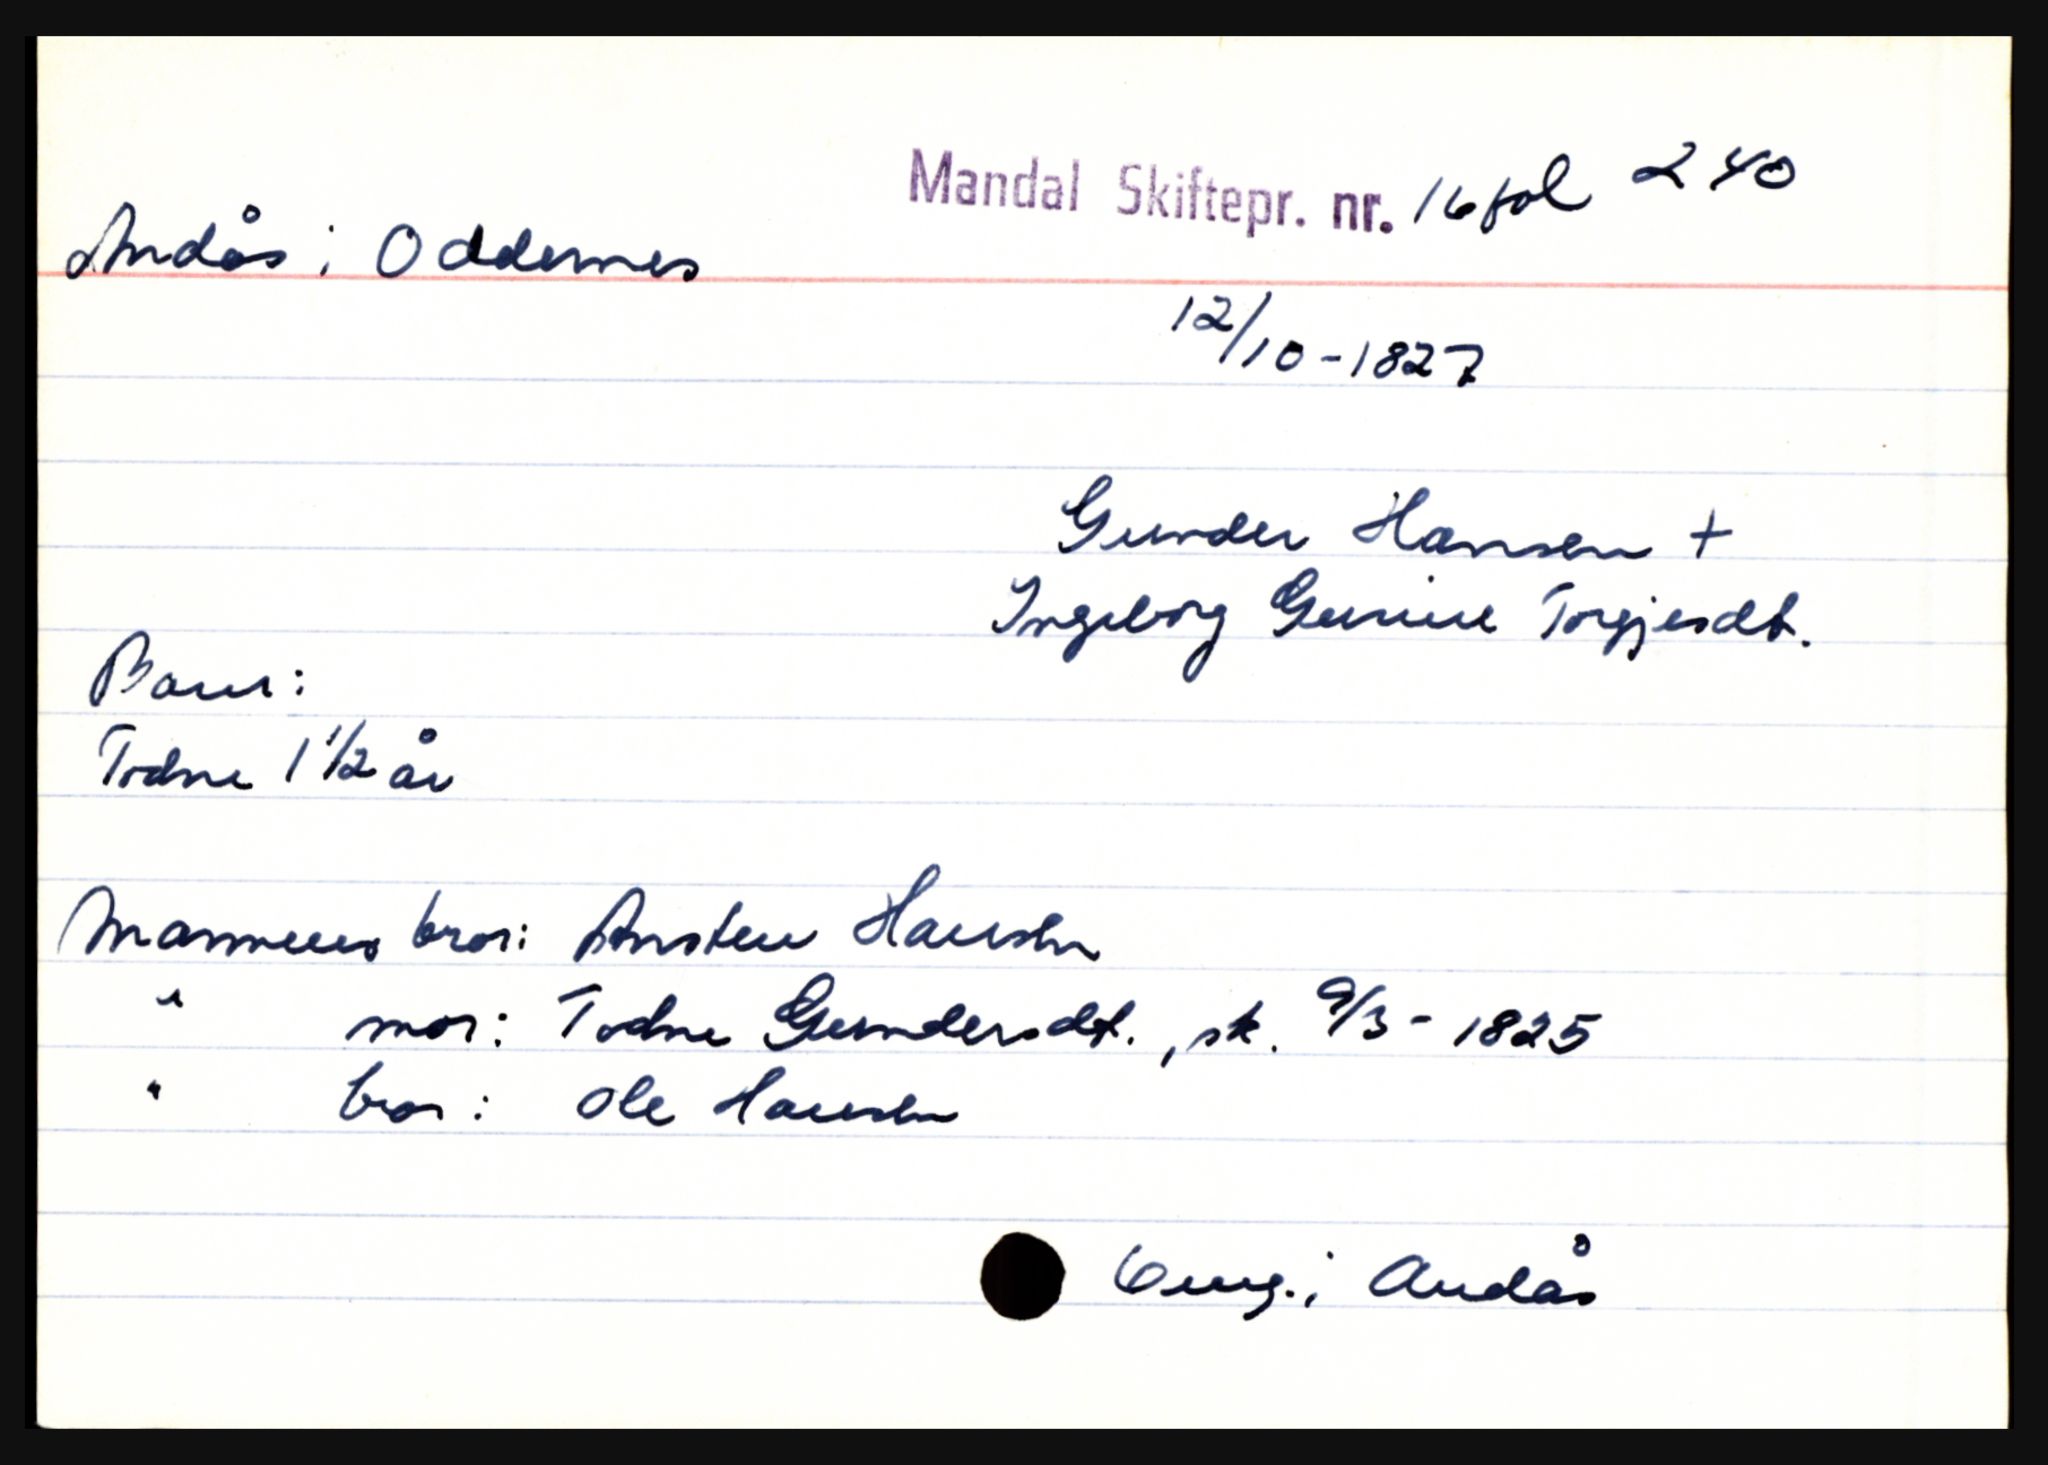 Mandal Skiftepr. nr. 16 fol 240
Andås i Oddernes
12/10-1827
Gunder Hansen +
Ingeborg Gurine Torgjesdt.
Barn:
Todne 1 1/2 år
Mannens bror: Ansten Hansen
" mor: Todne Gundersdt., sk. 9/3-1825
" bror: Ole Hansen
eng. i Andås